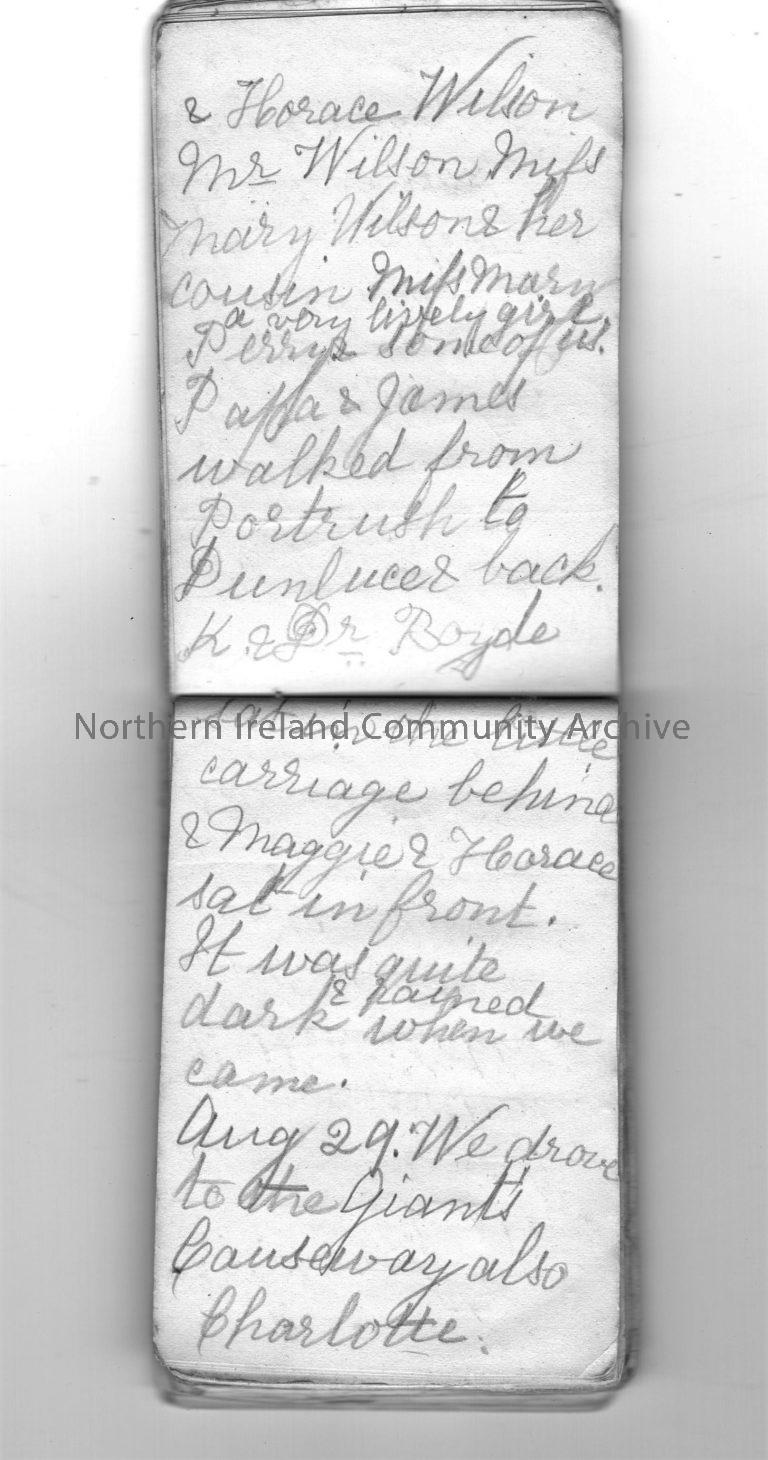 & Horace Wilson
Mr Wilson Miss
Mary Wilson & her
cousin Miss Mary
a very lively girl.
Perry & some of us.
Pappa & James
walked from
Portrush to
Dunluce & back.
K. & Dr Boyde
sat in the little
Northern Ireland Community Archive
carriage behind
& Maggie & Horace
sat in front.
It was quite
& rained
dark when we
came.
Aug 29. We drove
to the Giant's
Causeway also
Charlotte.